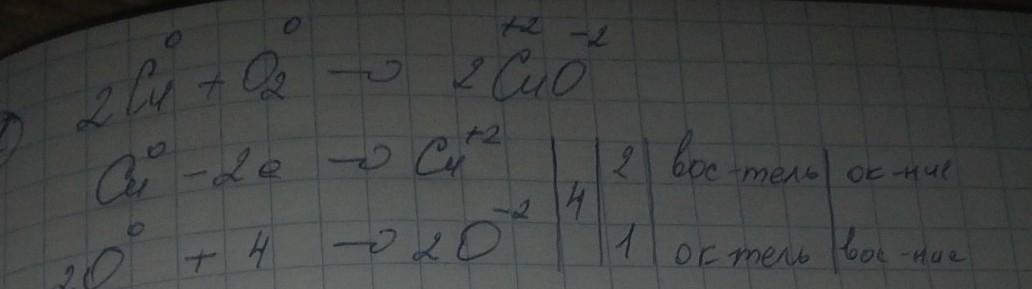 2Cu⁰ + O₂⁰ → 2Cu⁺²O⁻²
Cu⁰ - 2e → Cu⁺² | 4 | 2 | вос-тель | ок-ние
2O⁰ + 4 → 2O⁻² | | 1 | ок тель | вос-ние